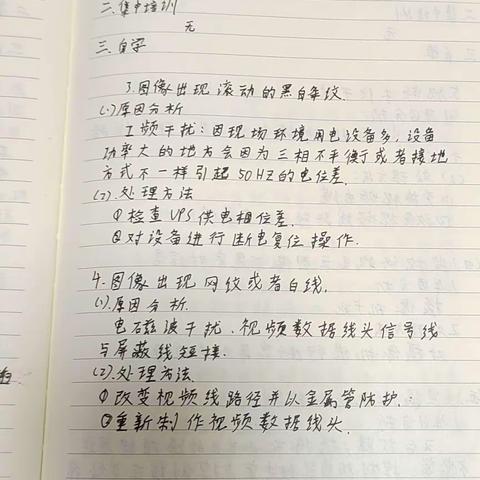 二.集中培训
无
三.自学
3.图像出现滚动的黑白条纹.
(1)原因分析
工频干扰:因现场环境用电设备多,设备
功率大的地方会因为三相不平衡或者接地
方式不一样引起50HZ的电位差.
(2).处理方法
①检查UPS供电相位差.
②对设备进行断电复位操作.
4.图像出现网纹或者白线.
(1).原因分析.
电磁波干扰.视频数据线头信号线
与屏蔽线短接.
(2).处理方法.
①改变视频线路径并以金属管防护.
②重新制作视频数据线头.